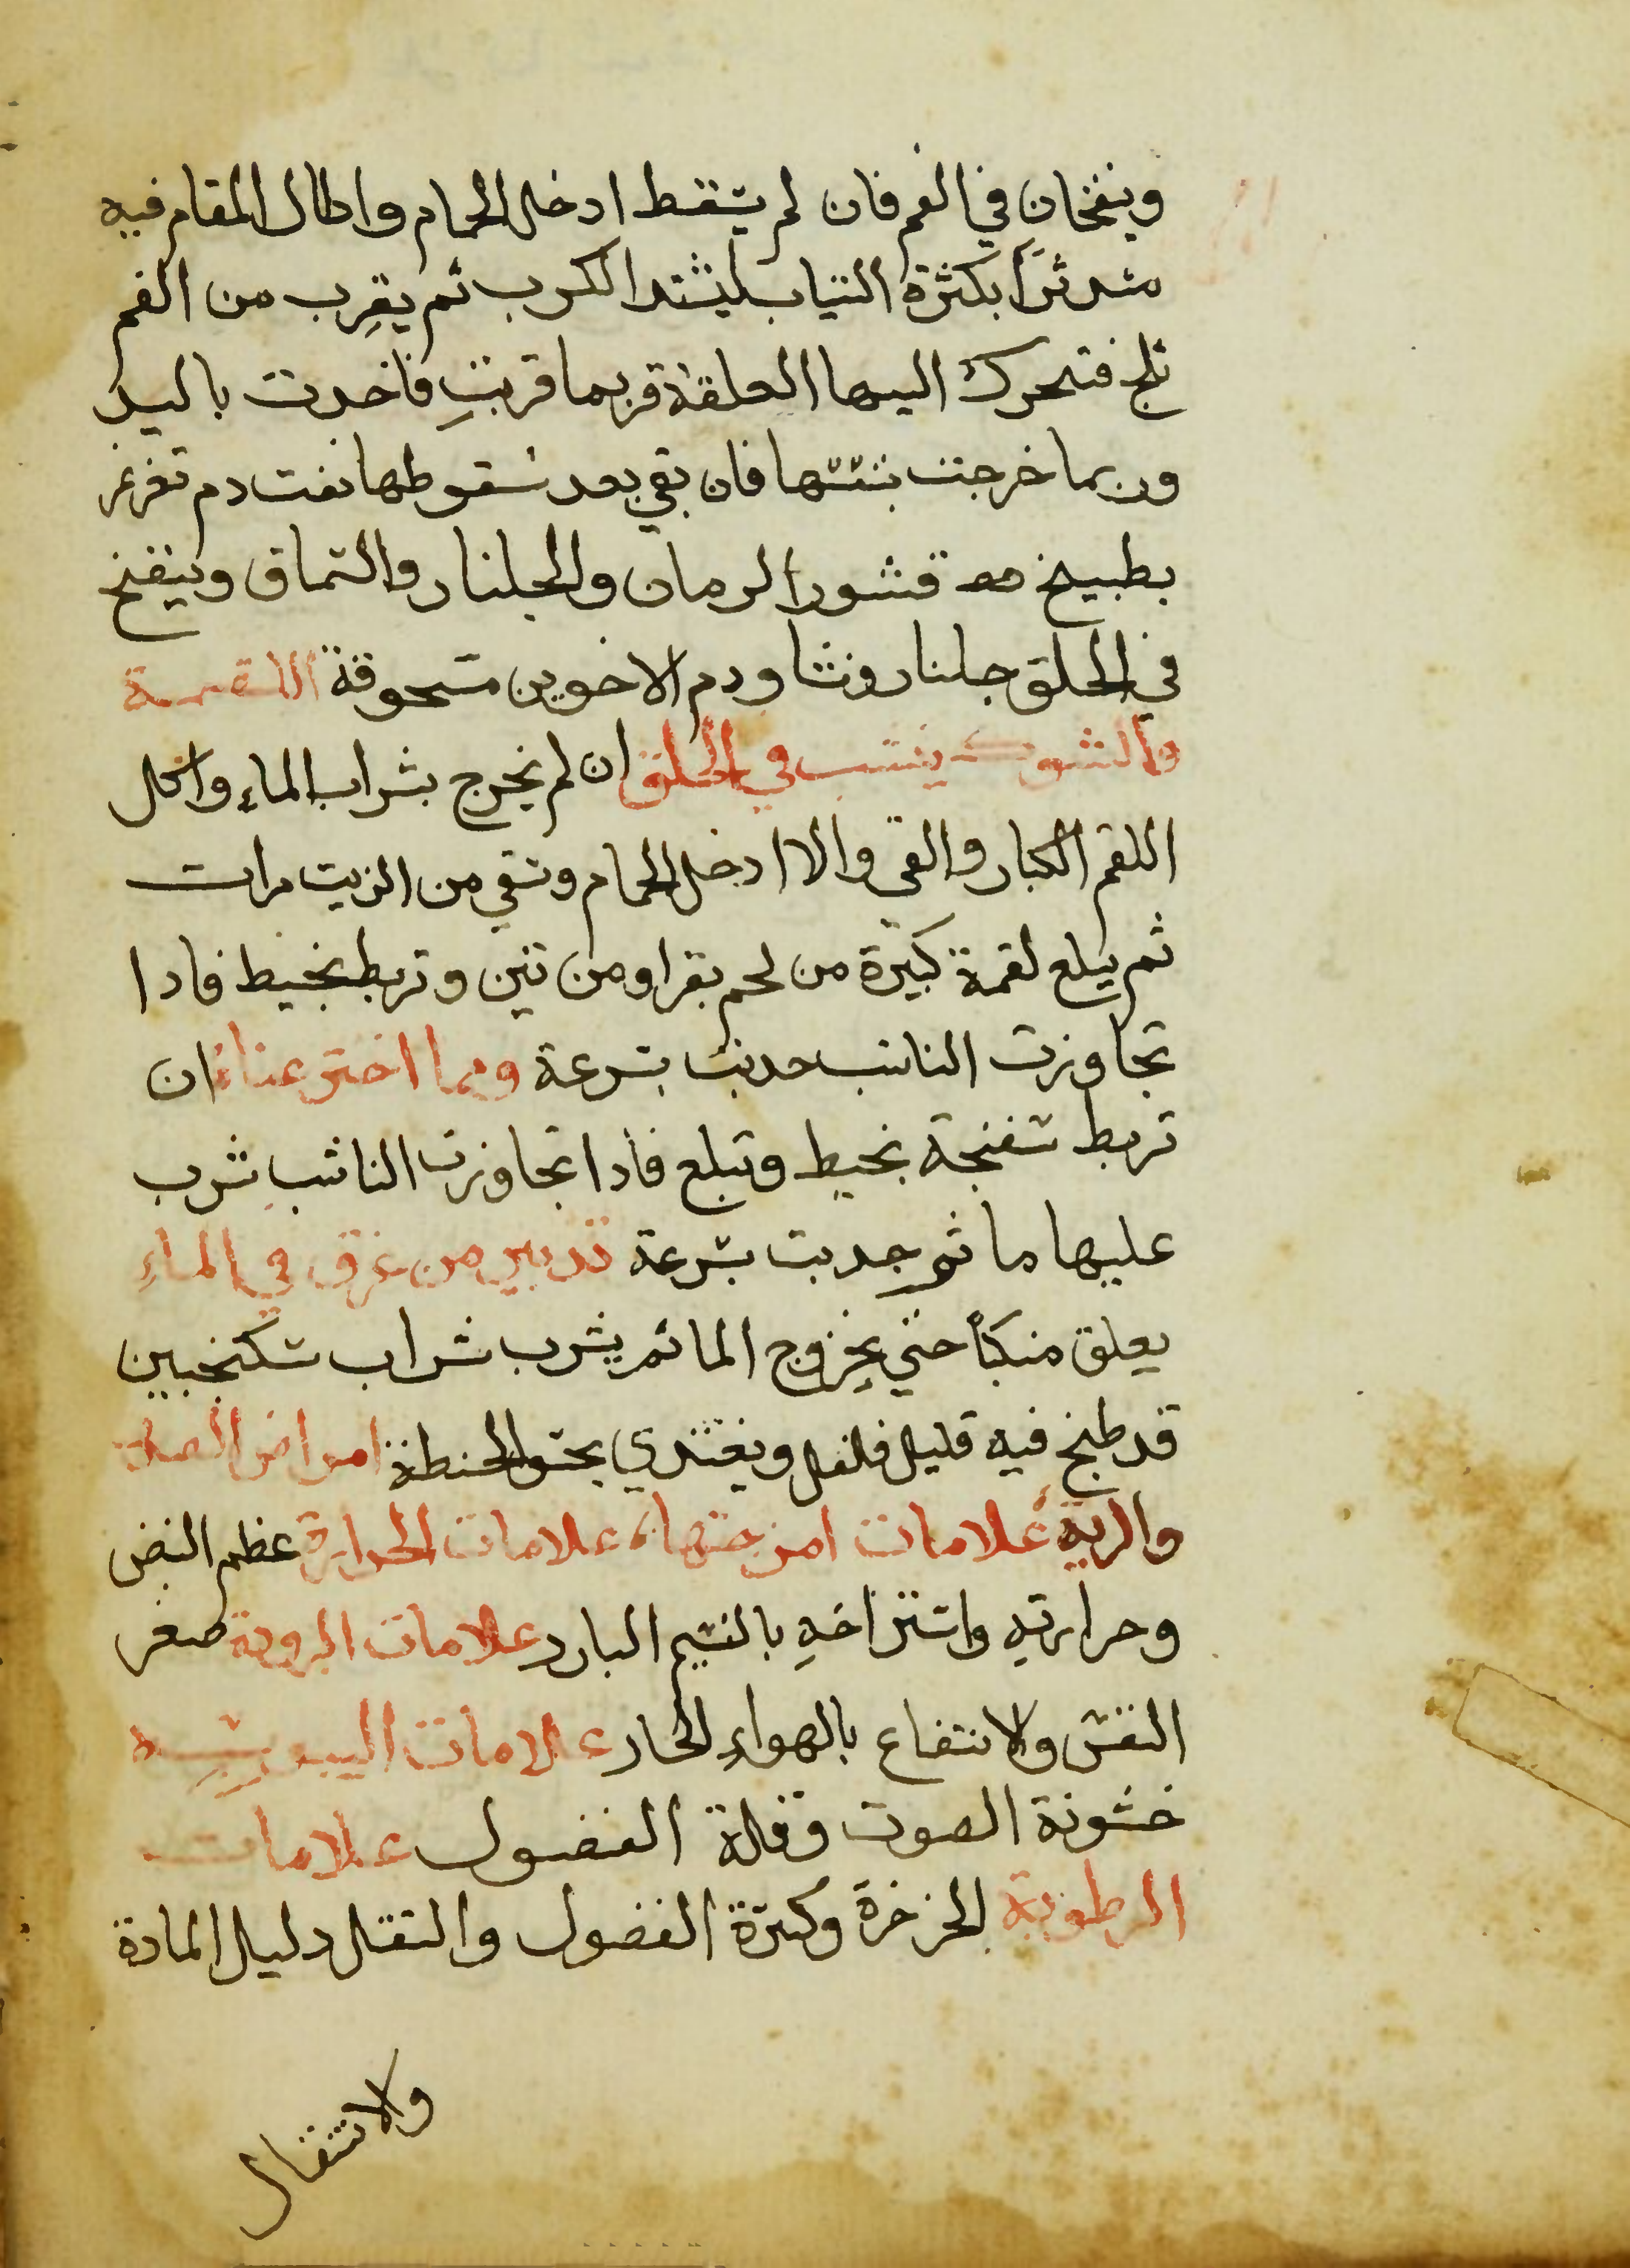 وينفخان في الفم فان لم يسقط ادخل الحمام واطال المقام فيه
متدثرًا بكثرة الثياب ليشتد الكرب ثم يقرب من الفم
ثلج فتحرك اليها العلقة فربما قربت فاخدت باليد
وربما خرجت بنفسها فان بقي بعد سقوطها نفت دم تغرغر
بطبيخ قشور الرمان والجلنار والسماق وينفخ
في الحلق جلنار ونشا ودم الاخوين مسحوقة اللقمة
والشوك ينشب في الحلق ان لم يخرج بشراب الماء واكل
اللقم الكبار والقي والا ادخل الحمام وتقي من الزيت مرات
ثم يبلع لقمة كبيرة من لحم بقر او من تين وتربط بخيط فادا
تجاوزت الناشب جدبت بسرعة ومما اخترعناه ان
تربط سفنجة بخيط وتبلع فادا تجاوزت الناشب شرب
عليها ما ثم جدبت بسرعة تدبير من غرق في الماء
يعلق منكبًا حتي يخروج الما ثم يشرب شراب سكنجبين
قد طبخ فيه قليل فلفل ويغتدي بحسو الحنطة امراض الصدر
والرية علامات امزجتها علامات الحرارة عظم النبض
وحرارته واستراخه بالنسيم البارد علامات البرودة صغر
النفس والانتفاع بالهواء الحار علامات اليبوسه
خشونة الصوت وقلة الفضول علامات
الرطوبة الخرخرة وكثرة الفضول والثقل دليل المادة
والانتقال